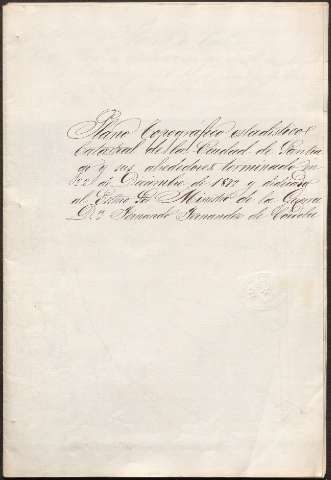 Plano Topografico estadistico
Catastral de la Ciudad de Santia
go y sus alrededores terminado en
22 de Diciembre de 1872 y dedicado
al Exmo Sor Ministro de la Guerra
Dn Fernando Fernandez de Cordoba